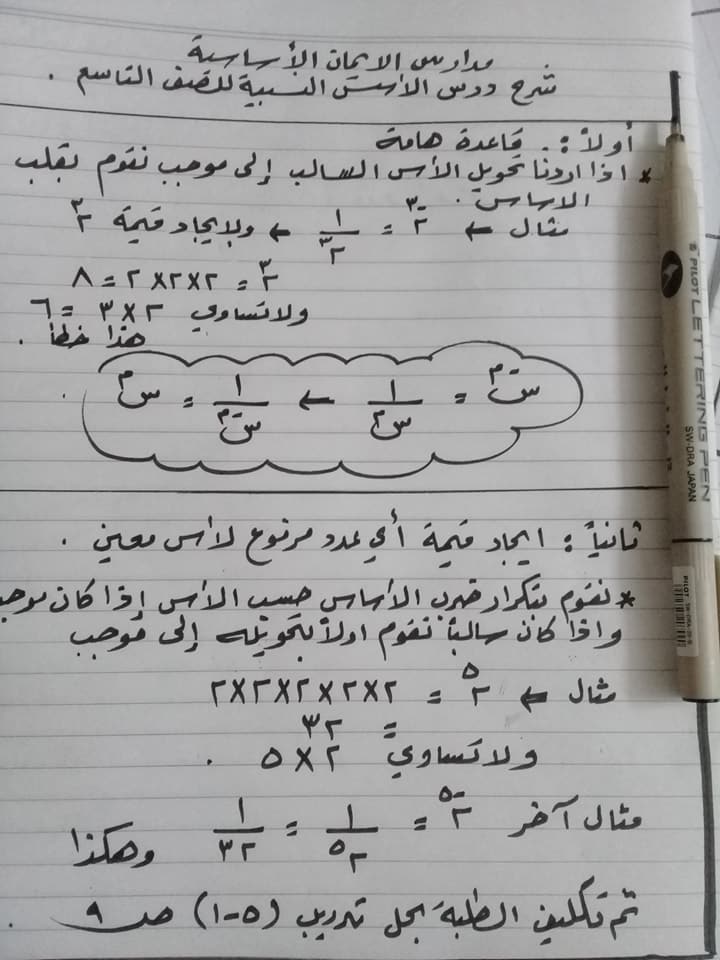 مدارس الايمان الأساسية
شرح درس الأسس النسبية للصف التاسع .
أولاً : . قاعدة هامة
* اذا اردنا تحويل الأس السالب إلى موجب نقوم بقلب
الاساس .
مثال ← ٢⁻³ = ١/٢³ ← ولإيجاد قيمة ٢³
٢³ = ٢×٢×٢ = ٨
ولا تساوي ٢×٣ = ٦
هذا خطأ .
س⁻ᵐ = ١/سᵐ ← ١/س⁻ᵐ = سᵐ
ثانياً : ايجاد قيمة أي عدد مرفوع لأس معين .
* نقوم بتكرار ضرب الأساس حسب الأس إذا كان موجب
واذا كان سالباً نقوم اولاً بتحويله إلى موجب
مثال ← ٢⁵ = ٢×٢×٢×٢×٢
= ٣٢
ولا تساوي ٢×٥ .
مثال آخر ٢⁻⁵ = ١/٢⁵ = ١/٣٢ وهكذا
تم تكليف الطلبة بحل تدريب (٥-١) ص ٩ .
PILOT LETTERING PEN
SW-DRA JAPAN
PILOT